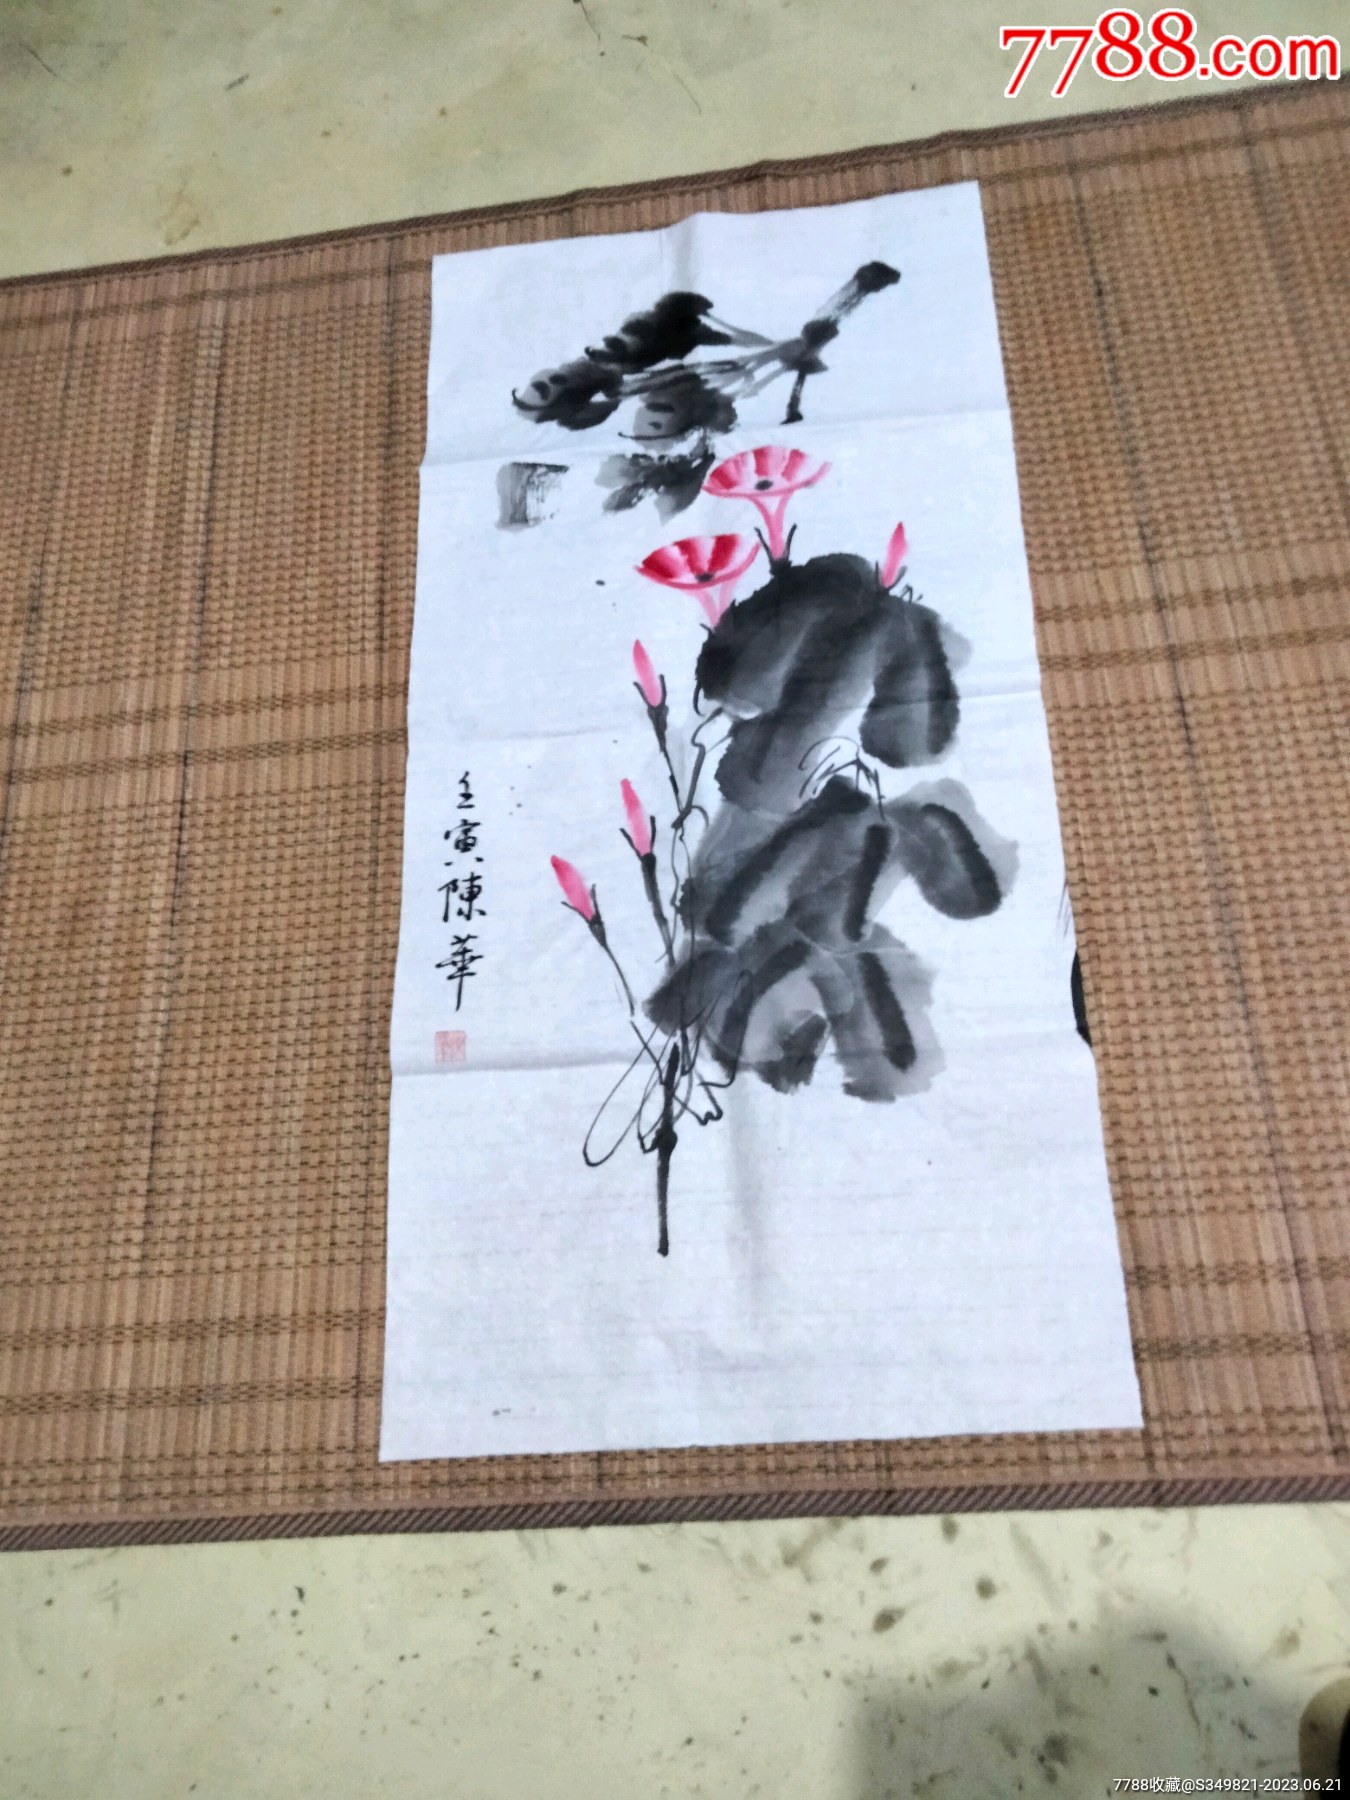 7788.com
壬寅陳華
7788收藏@S349821-2023.06.21